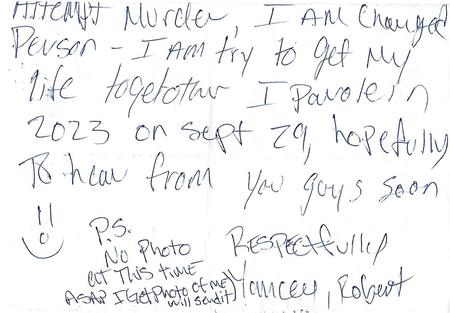 Attempt Murder, I AM Changed
Person - I AM try to get My
life togetother I Parole in
2023 on Sept 29, hopefully
To hear from you guys soon
P.S.
No Photo
at This time
ASAP I Get Photo of me
will send it)
RESPECTfully
Yancey, Robert